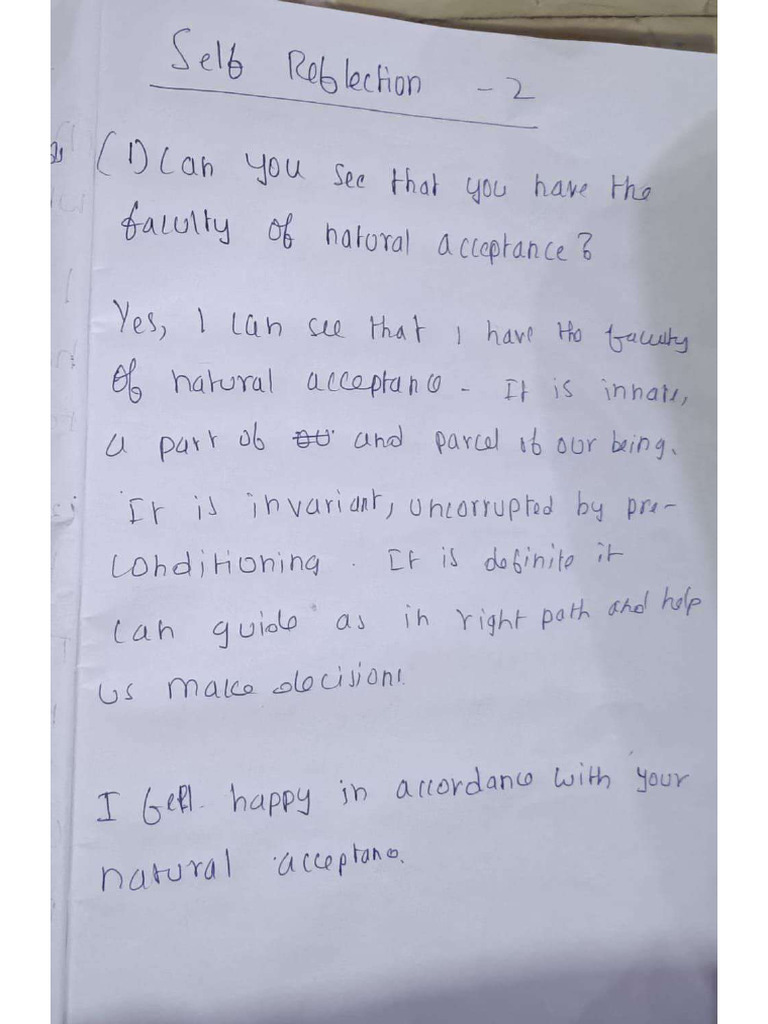 Self Reflection - 2
(1) Can you see that you have the
faculty of natural acceptance?
Yes, I can see that I have the faculty
of natural acceptance - It is innate,
a part of and parcel of our being.
It is invariant, uncorrupted by pre-
conditioning. It is definite it
can guide as in right path and help
us make decisions.
I feel happy in accordance with your
natural acceptance.